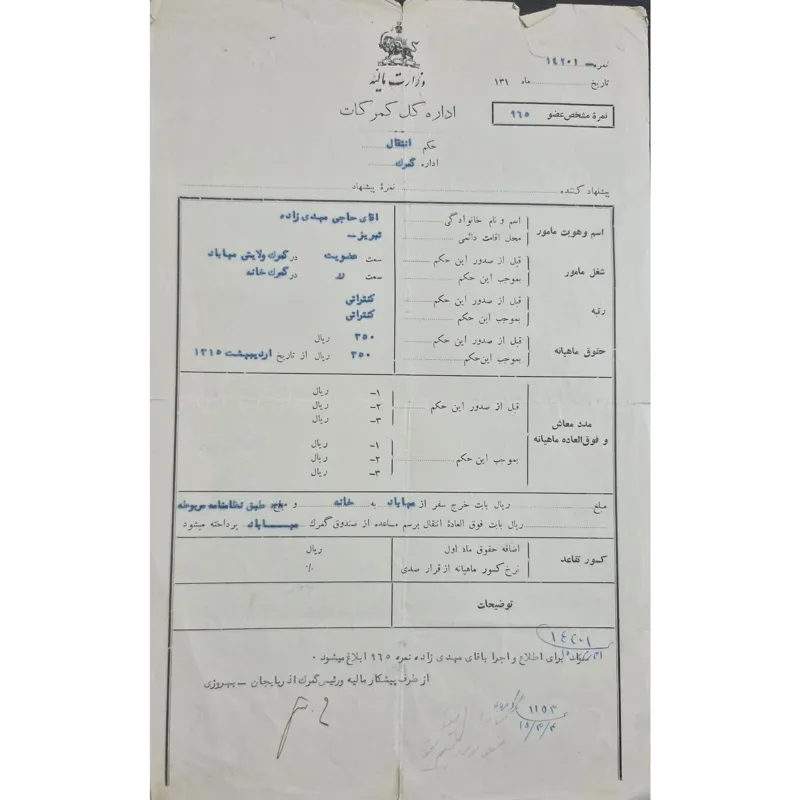 نمره ۱٤۲۰۱
وزارت مالیه
تاریخ ماه ۱۳۱
اداره کل گمرکات
نمرهٔ مشخص عضو ۹٦٥
حکم انتقال
اداره گمرک
پیشنهاد کننده نمرهٔ پیشنهاد
اسم و هویت مامور
اسم و نام خانوادگی آقای حاجی مهدی زاده
محل اقامت دائمی تبریز
شغل مامور
قبل از صدور این حکم سمت عضویت در گمرک ولایتی مهاباد
بموجب این حکم سمت در گمرک خانه
رتبه
قبل از صدور این حکم کنتراتی
بموجب این حکم کنتراتی
حقوق ماهیانه
قبل از صدور این حکم ۳٥۰ ریال
بموجب این حکم ۳٥۰ ریال از تاریخ اردیبهشت ۱۳۱٥
مدد معاش
و فوق‌العاده ماهیانه
قبل از صدور این حکم
۱- ریال
۲- ریال
۳- ریال
بموجب این حکم
۱- ریال
۲- ریال
۳- ریال
مبلغ ریال بابت خرج سفر از مهاباد به خانه و طبق نظامنامه مربوطه
ریال بابت فوق العادهٔ انتقال برسم مساعده از صندوق گمرک مهاباد پرداخته میشود
کسور تقاعد
اضافه حقوق ماهٔ اول ریال
نرخ کسور ماهیانه از قرار صدی ٪
توضیحات
۱٤۲۰۱
سواد برای اطلاع و اجرا باقای مهدی زاده نمره ۹٦٥ ابلاغ میشود .
از طرف پیشکار مالیه و رئیس گمرک اذربایجان - بهروزی
۱۱٥۳
۱٥/۳/٤